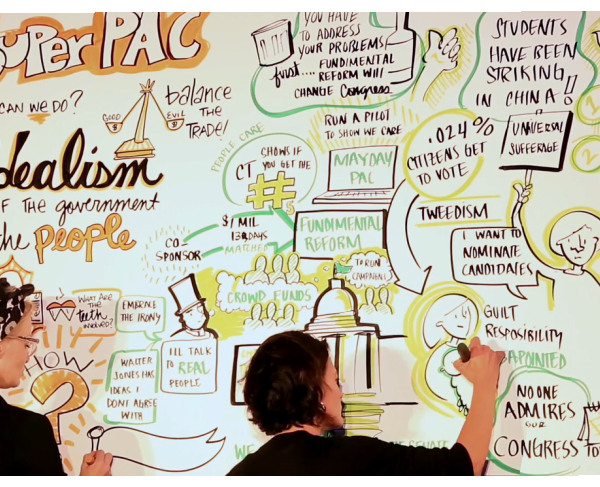 SUPER PAC
CAN WE DO?
balance
THE
TRADE!
GOOD
$
EVIL
$
Idealism
OF THE government
the people
YOU HAVE
TO ADDRESS
YOUR PROBLEMS
first.... FUNDIMENTAL
REFORM WILL
CHANGE Congress
STUDENTS
HAVE BEEN
STRIKING
IN CHINA!
RUN A PILOT
TO SHOW WE CARE
PEOPLE CARE
CT
CHOWS IF
YOU GET THE
#
$
MAYDAY
PAC
.024%
CITIZENS GET
TO VOTE
UNIVERSAL
SUFFERAGE
1
2
TWEEDISM
I WANT TO
NOMINATE
CANDIDATES
CO-
SPONSOR
$1 MIL
13 DAYS
MATCHED
FUNDIMENTAL
REFORM
TO RUN
CAMPAIGNS
CROWD FUNDS
WHAT ARE
THE
teeth
INVOLVED?
EMBRACE
THE IRONY
I'LL TALK
TO REAL
PEOPLE
WALTER
JONES HAS
IDEAS I
DONT AGREE
WITH
HOW
?
GUILT
RESPOSIBILITY
APPOINTED
NO ONE
ADMIRES
OUR
CONGRESS
WE
THE SENATE